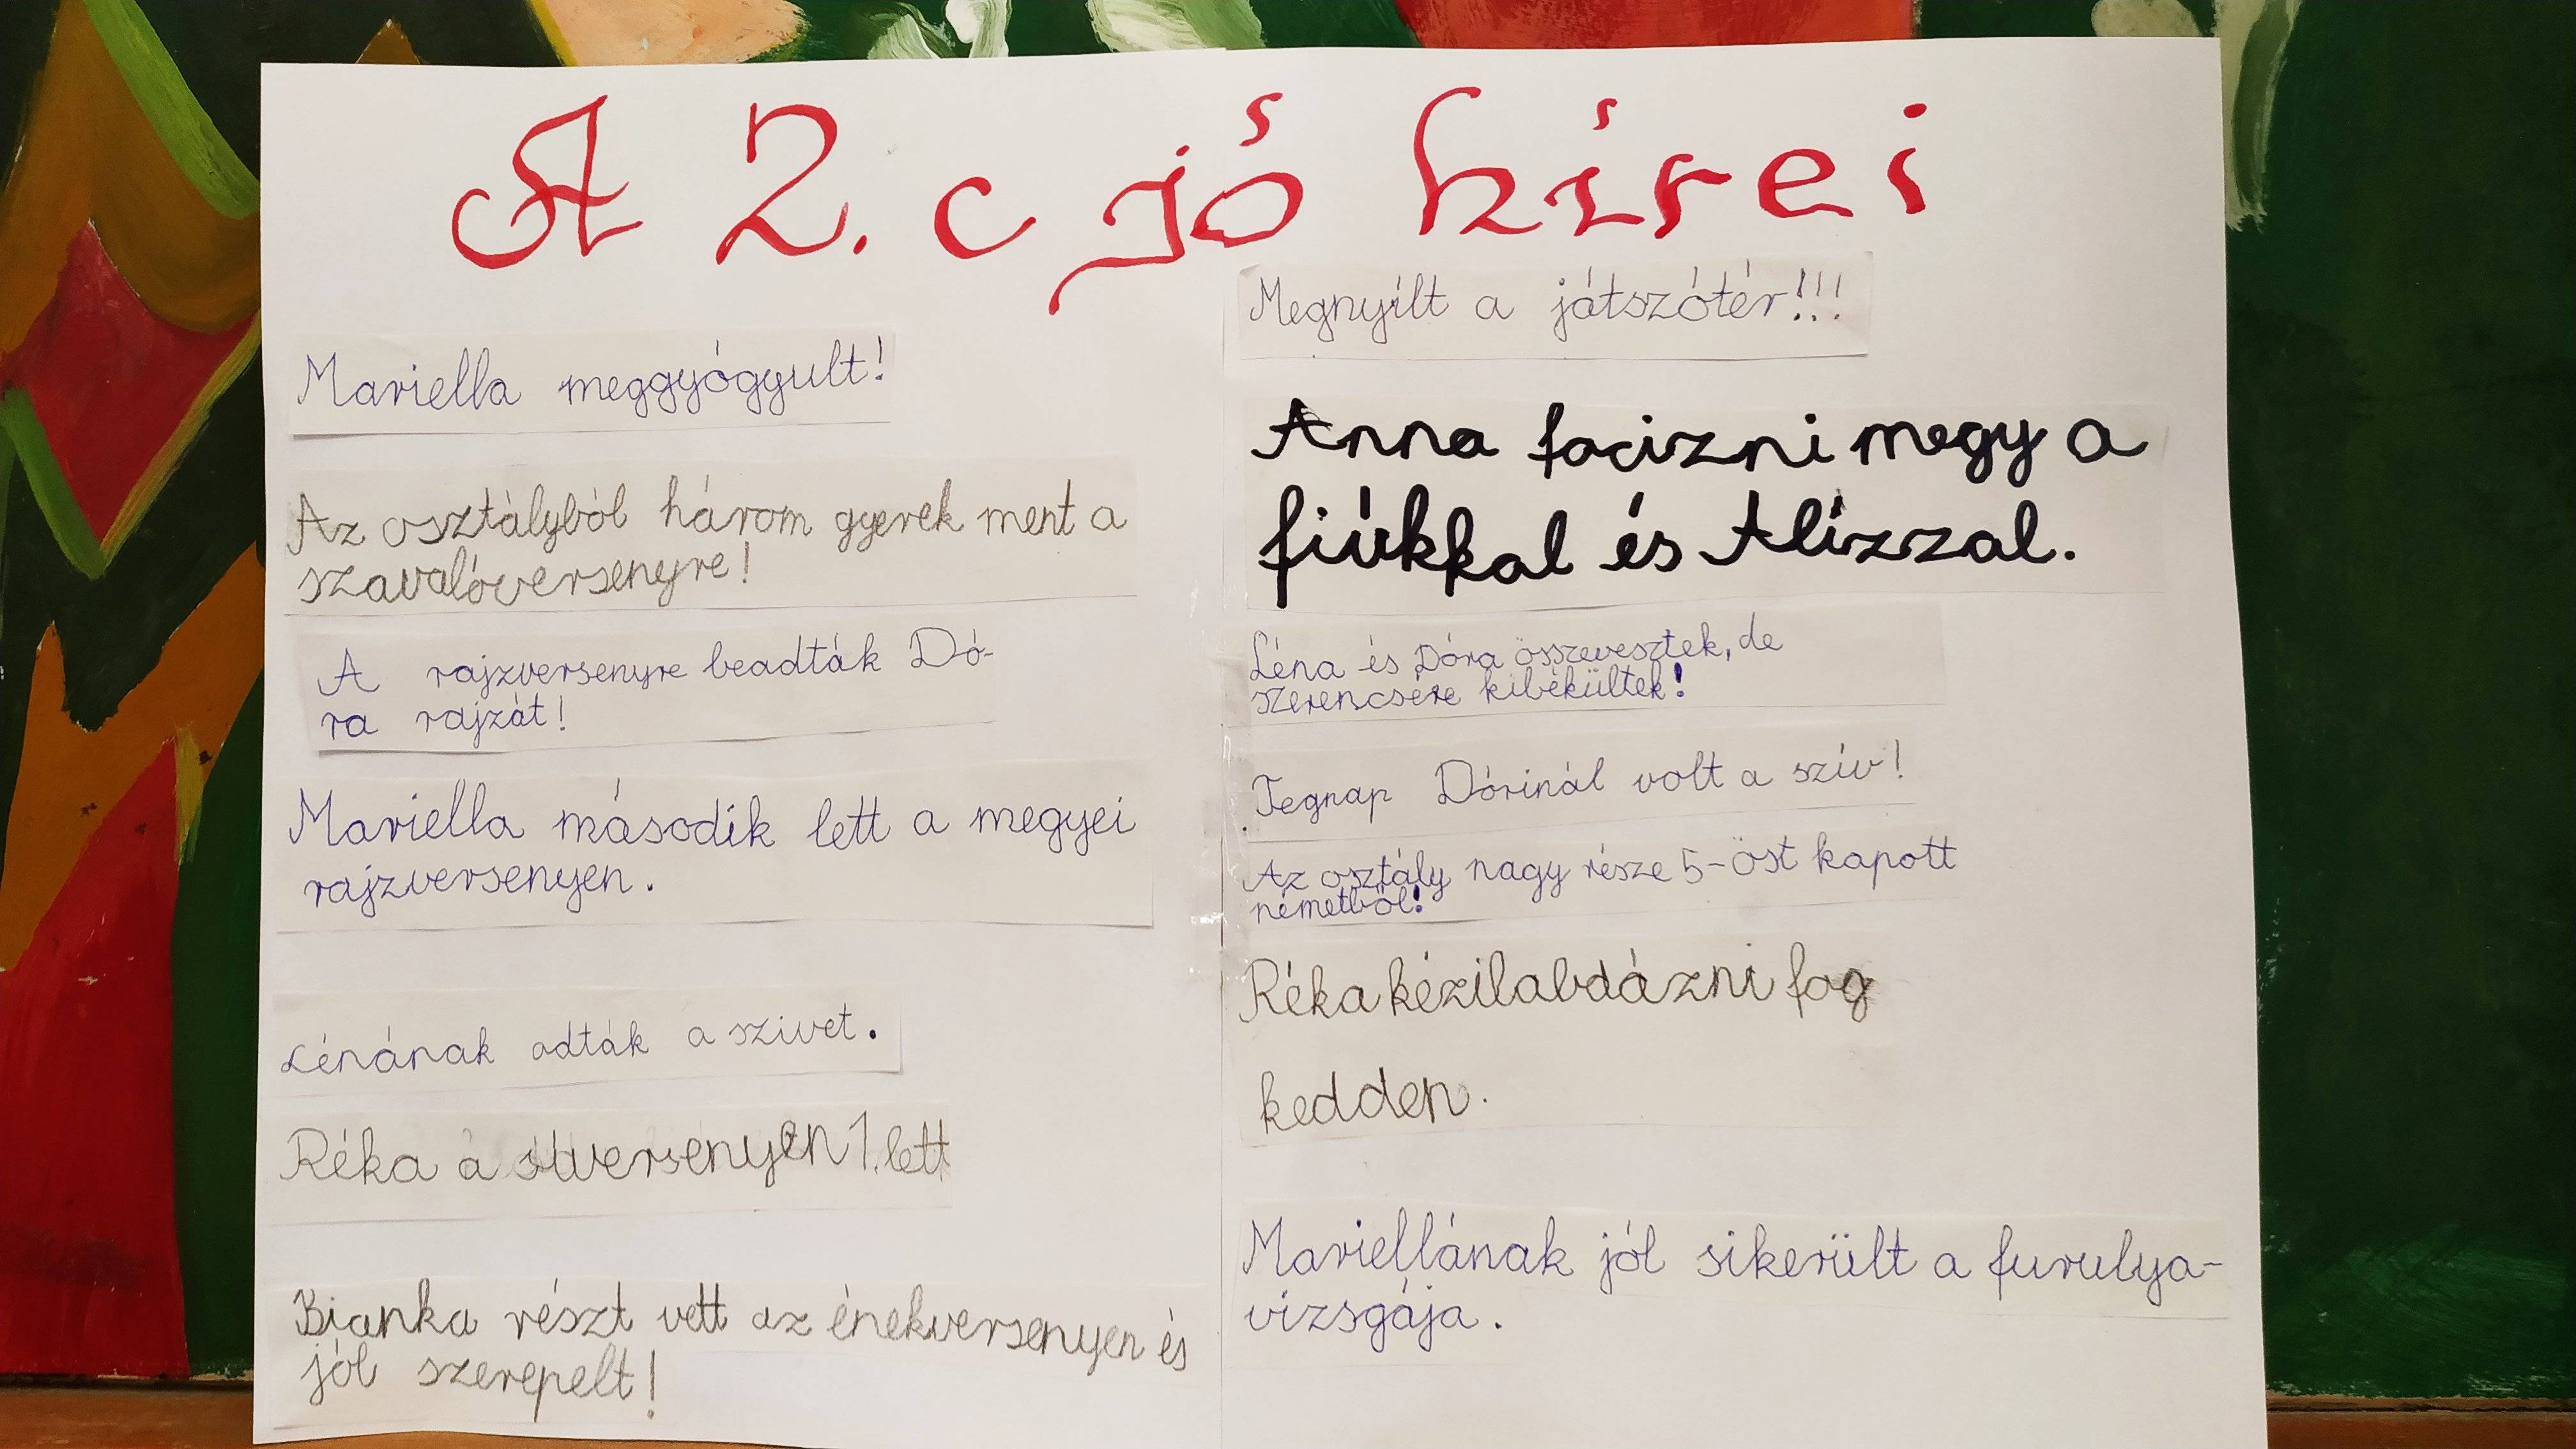 A 2. c jó hírei
Mariella meggyógyult!
Az osztályból három gyerek ment a
szavalóversenyre!
A rajzversenyre beadták Dó-
ra rajzát!
Mariella második lett a megyei
rajzversenyen.
Lénának adták a szivet.
Réka a síversenyen 1. lett
Bianka részt vett az énekversenyen és
jól szerepelt!
Megnyílt a játszótér!!!
Anna focizni megy a
fiúkkal és Alízzal.
Léna és Dóra összevesztek, de
szerencsére kibékültek!
Tegnap Dórinál volt a szív!
Az osztály nagy része 5-öst kapott
németből!
Réka kézilabdázni fog
kedden.
Mariellának jól sikerült a furulya-
vizsgája.